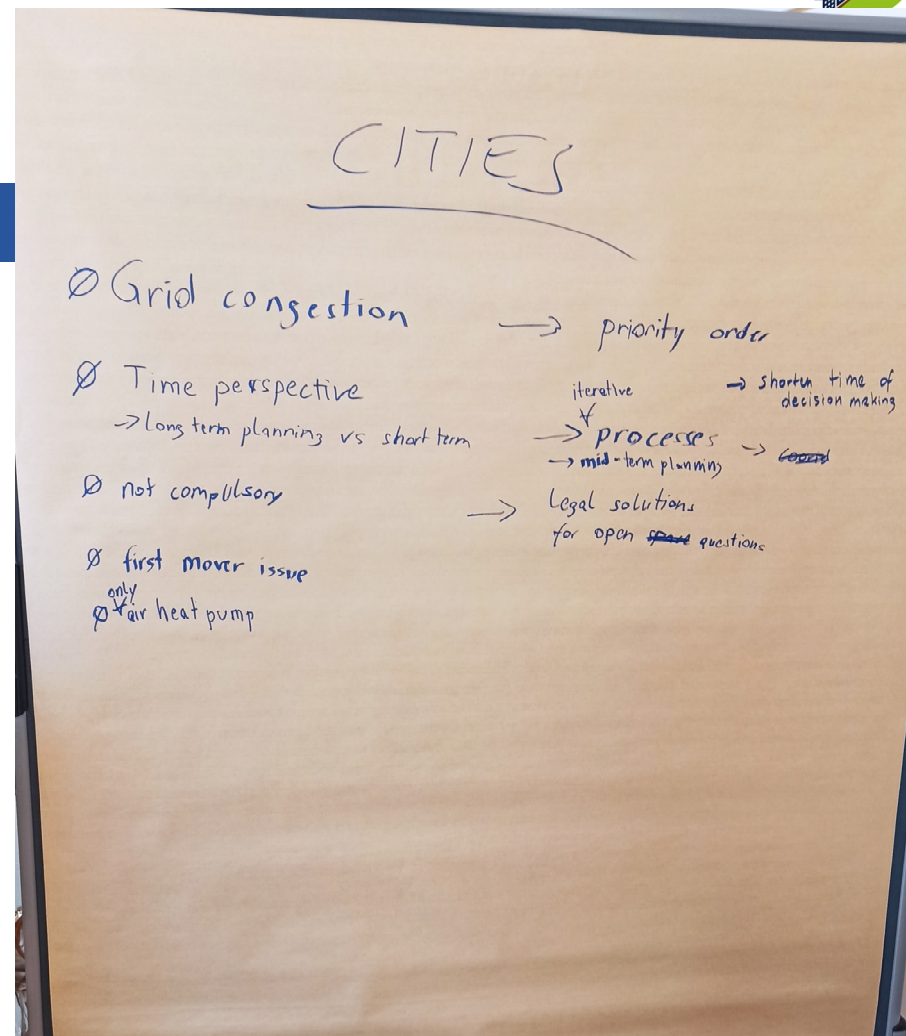 CITIES
Ø Grid congestion → priority order
Ø Time perspective
→ long term planning vs short term
iterative
→ processes
→ mid-term planning
→ shorten time of
decision making
→
Ø not compulsory
→ legal solutions
for open questions
Ø first mover issue
only
Ø air heat pump